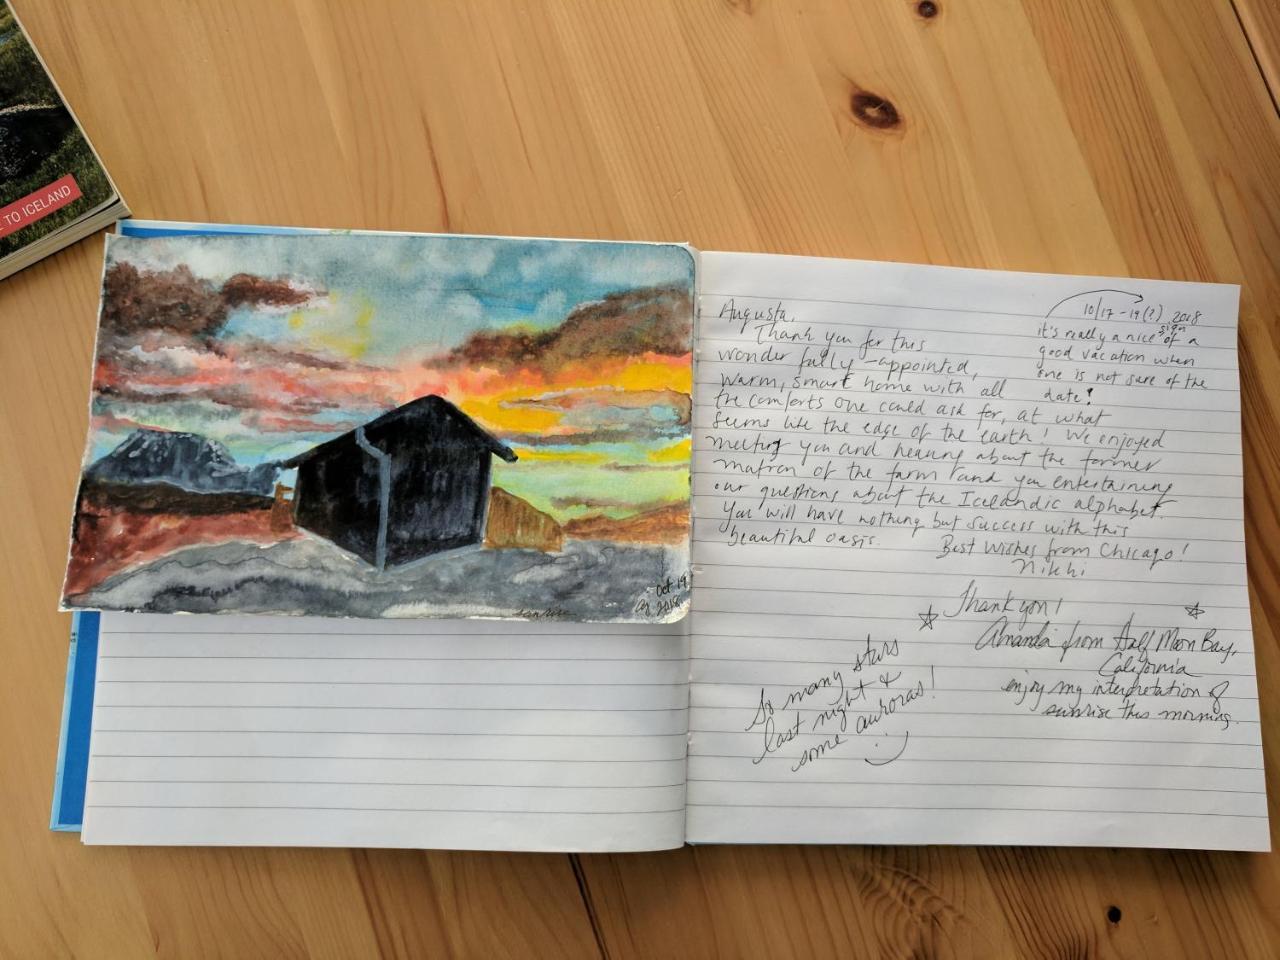 E TO ICELAND
Oct 19
2018
sunrise
10/17 - 19(?) 2018
it's really a nice sign of a
good vacation when
one is not sure of the
date!
Augusta,
Thank you for this
wonderfully-appointed,
warm, smart home with all
the comforts one could ask for, at what
seems like the edge of the earth! We enjoyed
meeting you and hearing about the former
matron of the farm and you entertaining
our questions about the Icelandic alphabet.
You will have nothing but success with this
beautiful oasis.
Best Wishes from Chicago!
Nikki
Thank you!
Amanda from Half Moon Bay,
California
enjoy my interpretation of
sunrise this morning.
So many stars
last night &
some auroras!